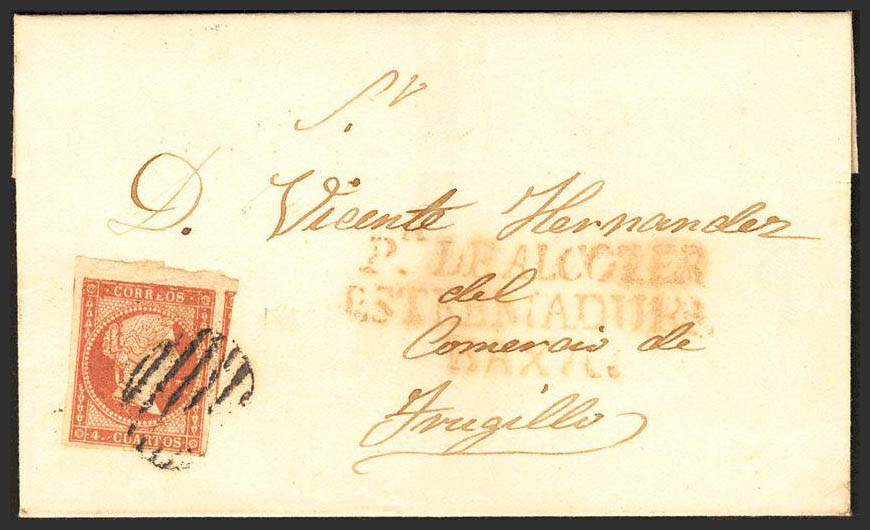 S.r
D. Vicente Hernandez
P.R DE ALCOZER
del
ESTREMADURA
Comercio de
BAXA.
Trugillo
CORREOS
4 CUARTOS